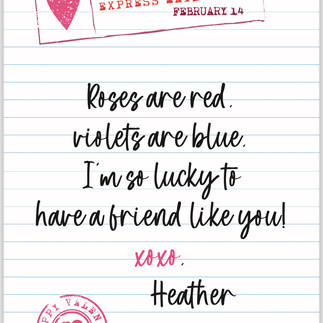 EXPRESS
FEBRUARY 14
Roses are red,
violets are blue.
I'm so lucky to
have a friend like you!
xoxo,
Heather